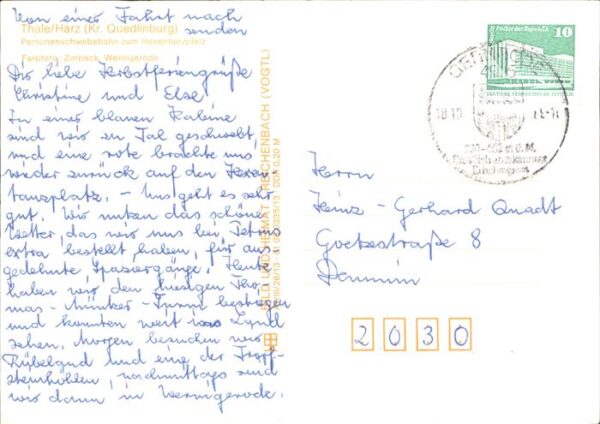 Von einer Fahrt nach
Thale/Harz (Kr. Quedlinburg) senden
Personenschwebebahn zum Hexentanzplatz
Farbfoto: Zorback, Wernigerode
Dir liebe Herbstferiengrüße
Christine und Else
In einer blauen Kabine
sind wir zu Tal geschwebt,
und eine rote brachte uns
wieder zurück auf den Hexen
tanzplatz. – Uns geht es sehr
gut. Wir nutzen das schöne
Wetter, das wir uns bei Petrus
extra bestellt haben, für aus
gedehnte Spaziergänge. Heute
haben wir den hiesigen Tho
mas-Münzer-Turm bestiegen
und konnten weit ins Land
sehen. Morgen besuchen wir
Rübeland und eine der Tropf-
steinhöhlen, nachmittags sind
wir dann in Wernigerode.
BILD UND HEIMAT REICHENBACH (VOGTL)
DDR 0,20 M
Palast der Republik
10
18.10.
Staatlich anerkannter
Erholungsort
Herrn
Heinz-Gerhard Quadt
Goetzestraße 8
Demmin
2030